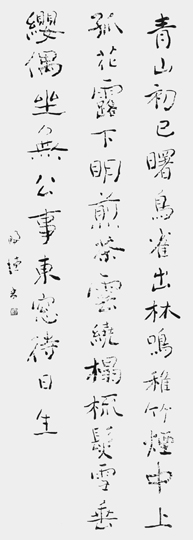 青山初已曙鳥雀出林鳴稚竹煙中上
孤花露下明煎茶雲繞榻梳髮雪垂
纓偶坐無公事東窓待日生